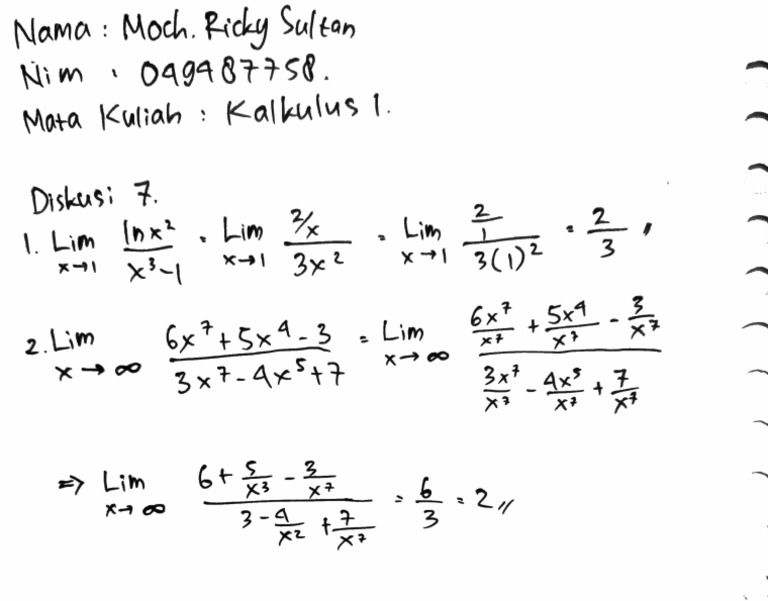 Nama : Moch. Ricky Sultan
Nim : 049487758.
Mata Kuliah : Kalkulus 1.
Diskusi 7.
1. Lim x→1 (ln x²)/(x³-1) = Lim x→1 (2/x)/(3x²) = Lim x→1 (2/1)/(3(1)²) = 2/3 //
2. Lim x→∞ (6x⁷+5x⁴-3)/(3x⁷-4x⁵+7) = Lim x→∞ (6x⁷/x⁷ + 5x⁴/x⁷ - 3/x⁷)/(3x⁷/x⁷ - 4x⁵/x⁷ + 7/x⁷)
⇒ Lim x→∞ (6 + 5/x³ - 3/x⁷)/(3 - 4/x² + 7/x⁷) = 6/3 = 2 //